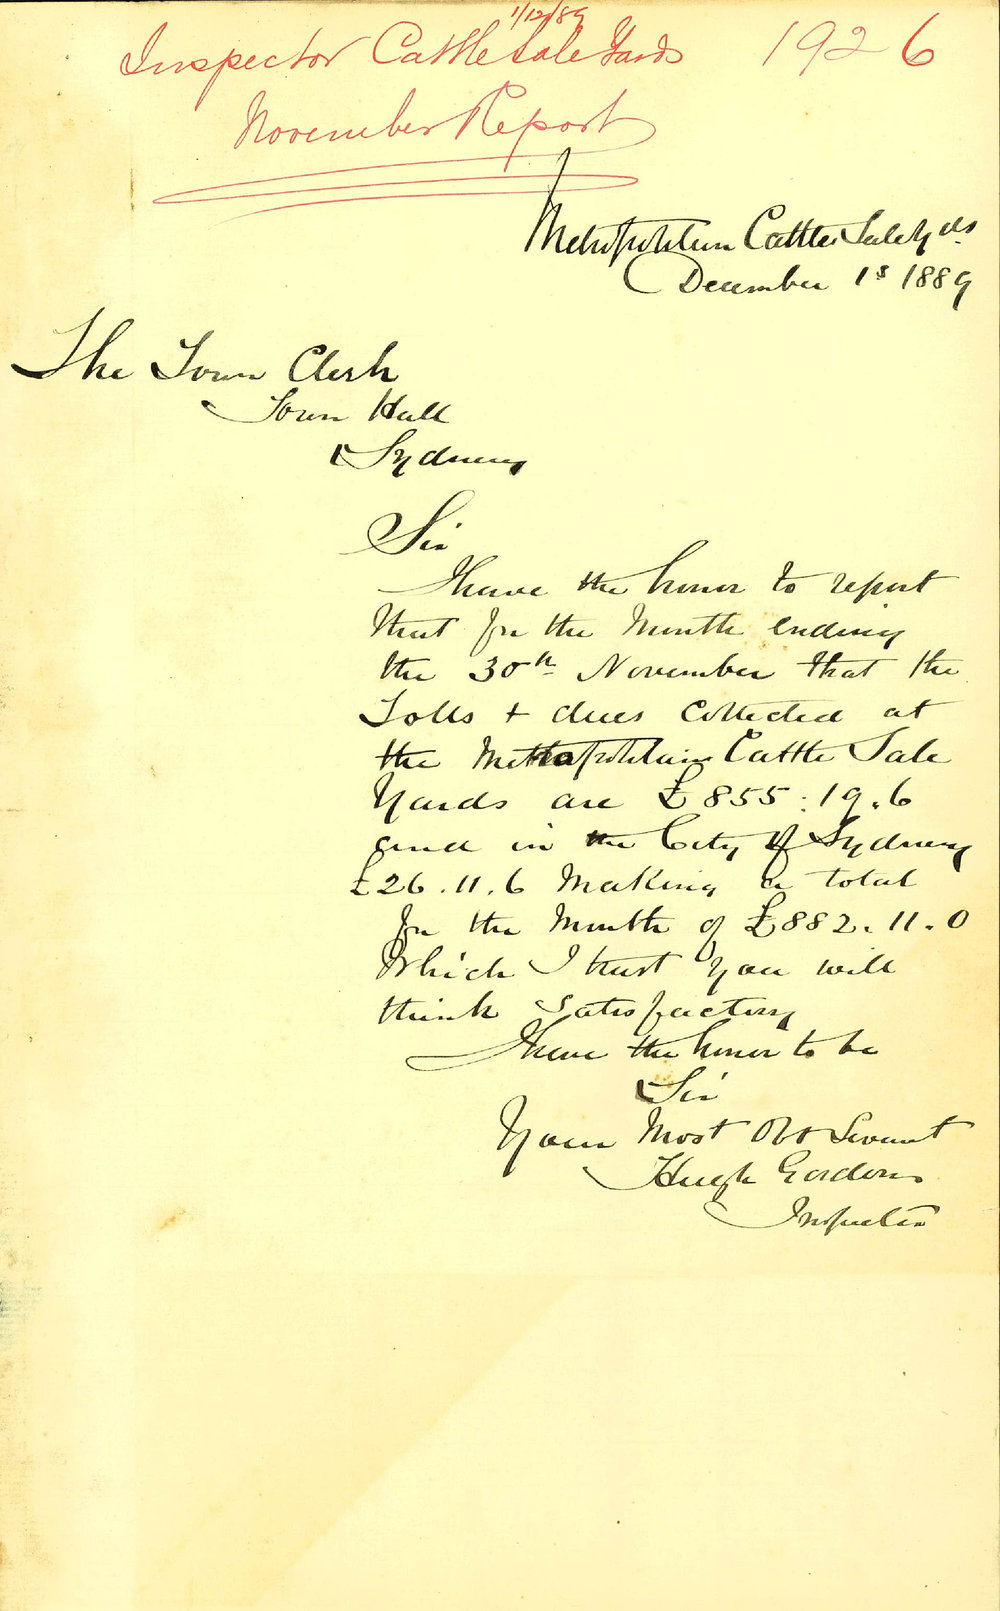 1/12/89
Inspector Cattle Sale Yards 1926
November Report
Metropolitan Cattle Sale Yds
December 1s 1889
The Town Clerk
Town Hall
Sydney
Sir
I have the honor to report
that for the Month ending
the 30th November that the
Tolls + dues collected at
the Metropolitain Cattle Sale
Yards are £855.19.6
and in the City of Sydney
£26.11.6 Making a total
for the Month of £882.11.0
Which I trust you will
think satisfactory
I have the honor to be
Sir
Your Most Obt Servant
Hugh Gordon
Inspector